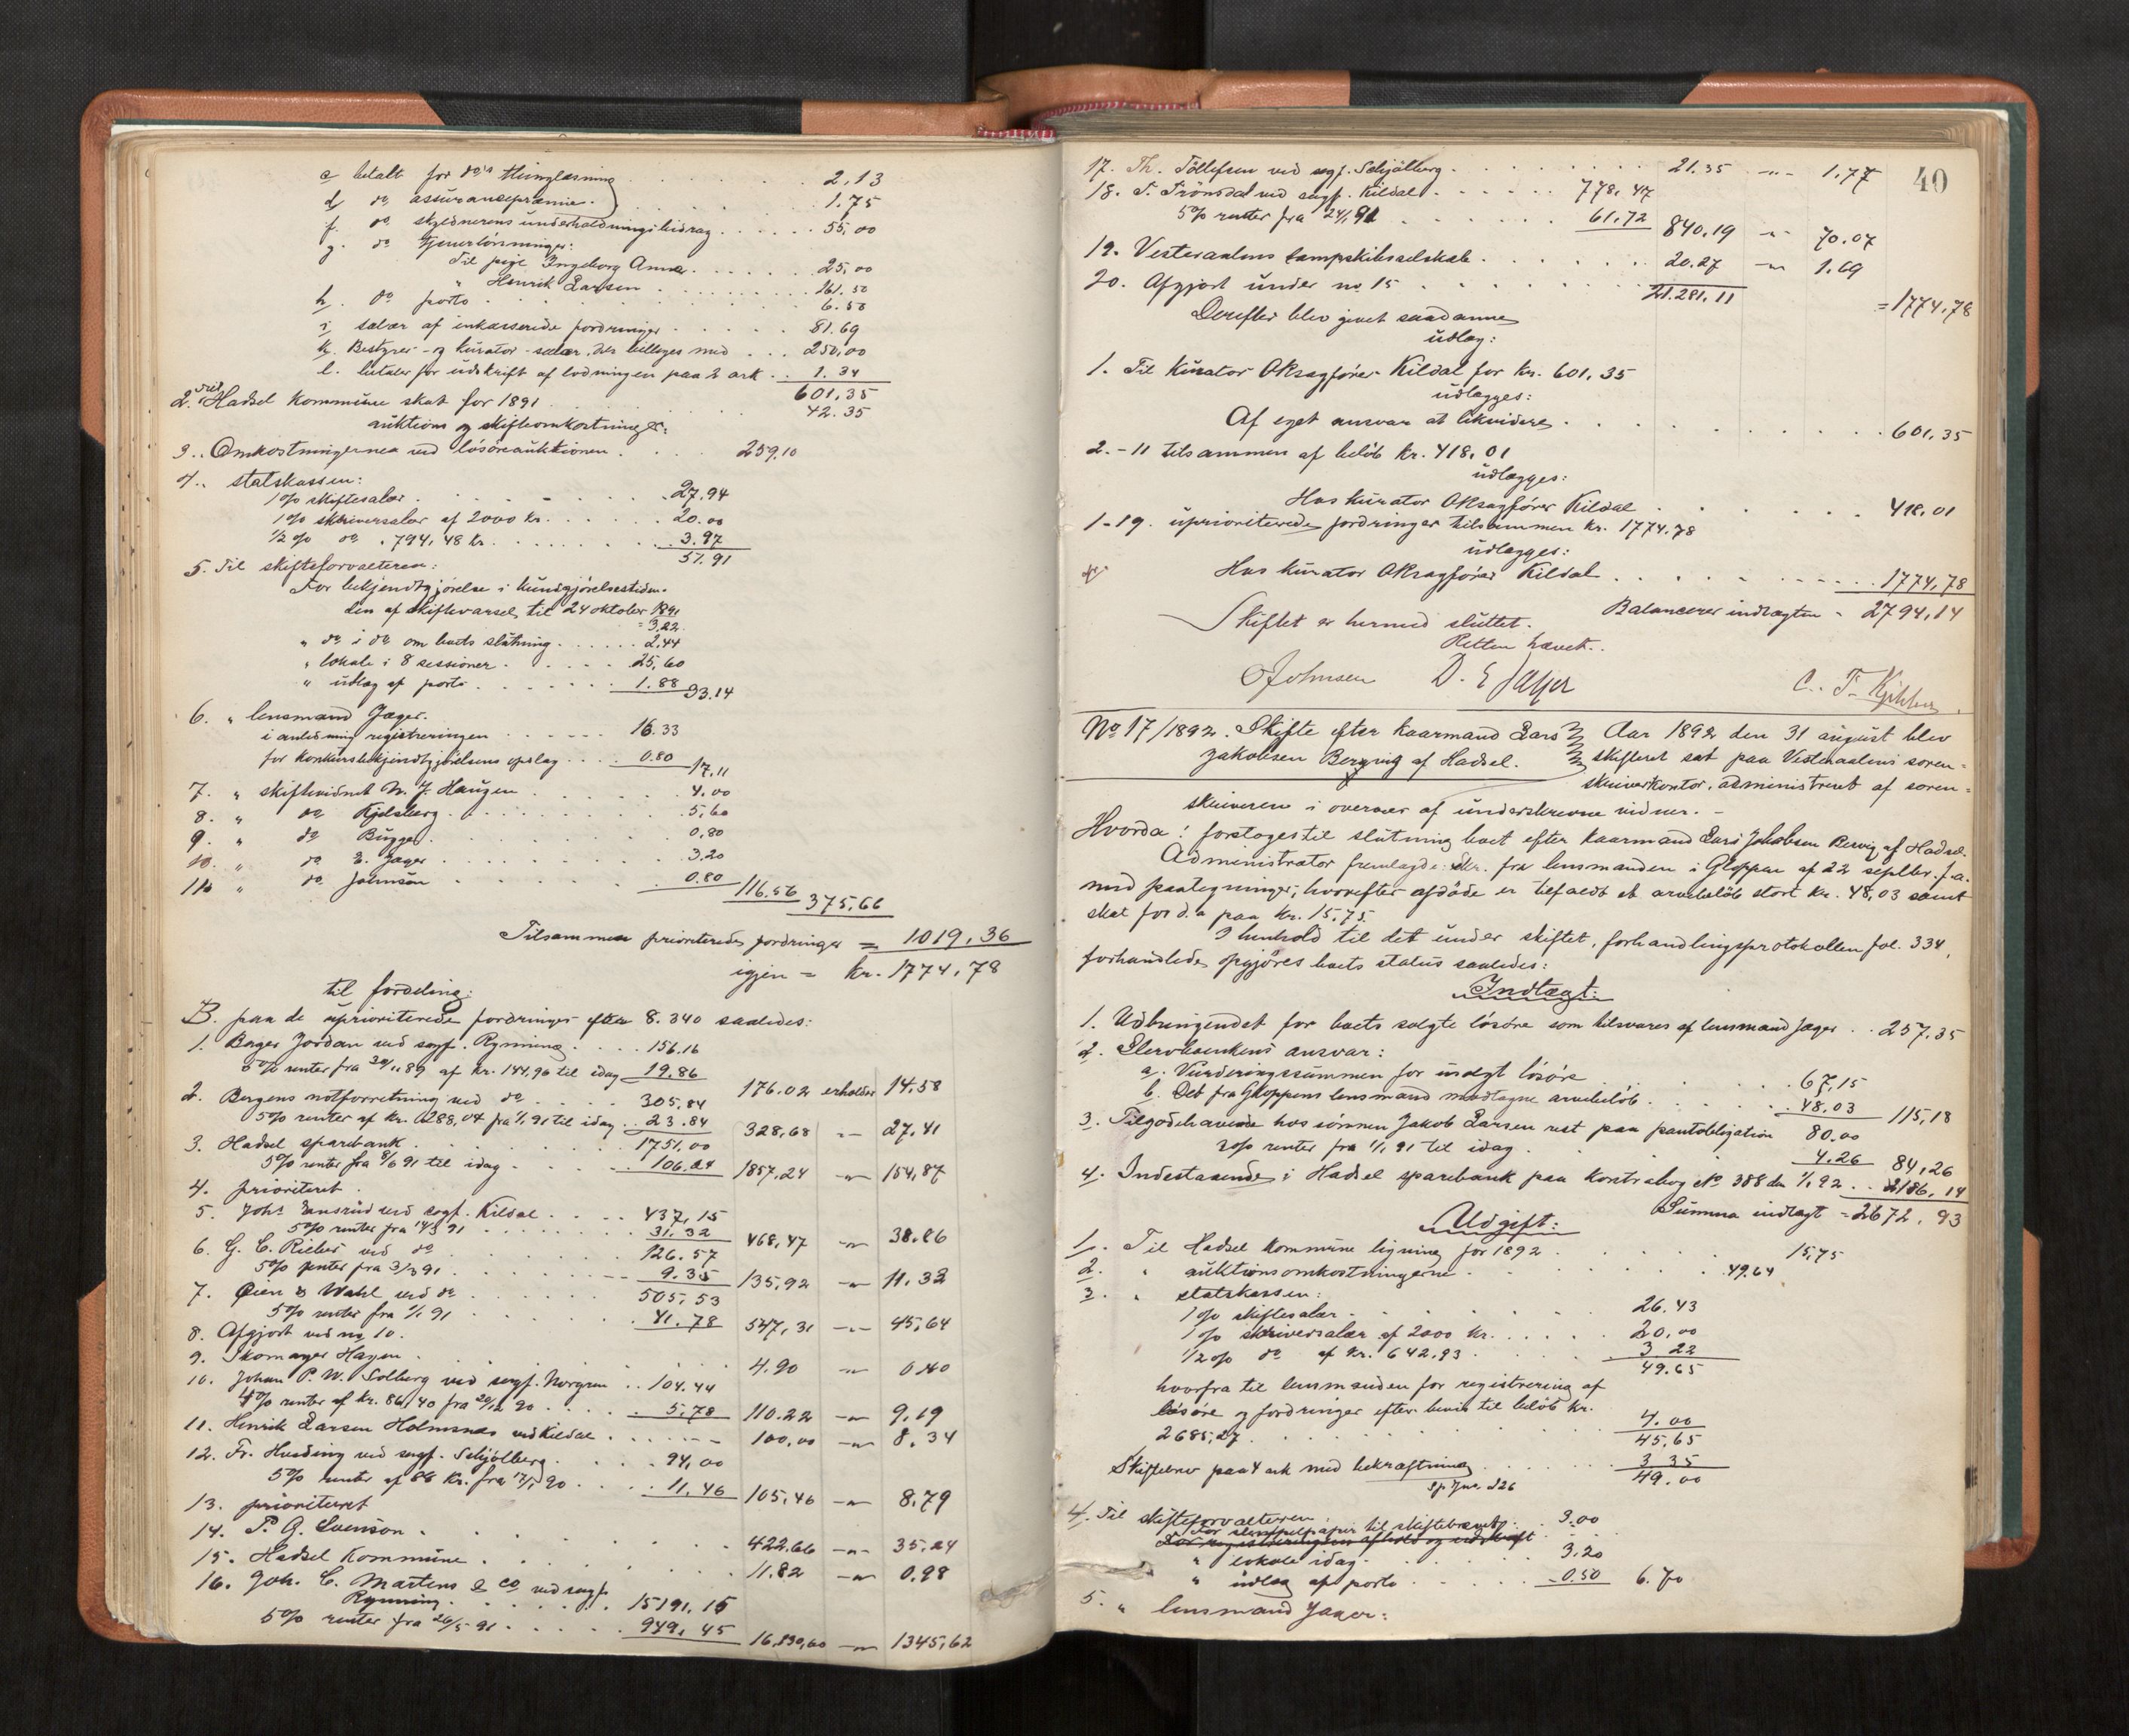 e betalt for do's thinglæsning . . . . 2,13
d, do assurancepræmie . . . . 1.75
f. do skyldnerens underholdningsbidrag . . . . . 55,00
g. do tjenerlönninger:
Til pige Ingeborg Anna . . . . . 25,00
" Henrik Larsen . . . . 161.50
h. do porto . . . . 6.50
i salær af inkasserede fordringer . . . . . 81.69
k. Bestyrer- og kurator-salær, der billiges med . . . 250,00
l. betaler for udskrift af lodningen paa 2 ark . . 1.34
601,35
2. Hadsel kommune skat for 1891 42.35
auktions og skifteomkostninger:
3.. Omkostningerne ved lösöreauktionen . . . 259.10
4.. statskassen:
1% skiftesalær . . . . 27.94
1% skriversalær af 2000 kr. . . . . 20.00
1/2% do . 794,48 kr. . . . . 3.97
51.91
5. Til skifteforvalteren:
For bekjendtgjörelse i kundgjörelsestiden-
den af skiftevarsel til 24 oktober 1891
= 3,22
" do i do om boets slutning . . . . . . 2.44
" lokale i 8 sessioner . . . . 25,60
" udlæg af porto . . . . . 1.88 33.14
6. " lensmand Jæger.
i anledning registreringen . . . . . 16.33
for konkursbekjendtgjörelsens opslag . . . . 0.80 17,11
7. " skiftevidnet N. J. Haugen . 4.00
8. " do Kjelsberg . . . . 5,60
9. " do Bugge . . 0,80
10. " do E. Jæger . . . 3.20
11. " do Johnsen . . . 0.80 116.56 375,66
Tilsammen prioriterede fordringer = 1019,36
igjen = kr. 1774,78
til fordeling:
B. paa de uprioriterede fordringer efter 8.340 saaledes:
1. Borger Jordan ved sagf. Rynning . . . . 156.16
5% renter fra 30/11 89 af kr. 144,96 til idag 19.86 176.02 erholder 14.58
2. Bergens notforretning ved do . . . . 305,84
5% renter af kr. 288,04 fra 1/1 91 til idag . . 23.84 328,68 -"- 27,41
3. Hadsel sparebank . . . 1751,00
5% renter fra 8/6 91 til idag . . . . 106.24 1857.24 -"- 154,87
4. prioriteret.
5. Johs Ensrud ved sagf. Kildal . . . . 437,15
5% renter fra 14/3 91 . . . . 31.32 468,47 -"- 38.86
6. G. C. Rieber ved do . . . . 126.57
5% renter fra 3/3 91 . . . . 9.35 135,92 -"- 11.32
7. Øien & Wahl ved do . . . . 505,53
5% renter fra 1/1 91 . . . . 41.78 547,31 -"- 45,64
8. Afgjort ved no 10.
9. Skomager Hagen . . . . 4.90 -"- 0.40
10. Johan P. W. Solberg ved sagf. Norgren . . 104.44
4% renter af kr. 86,40 fra 20/12 90 . . . . 5,78 110.22 -"- 9.19
11. Henrik Larsen Holmsnes ved Kildal . . . . 100,00 -"- 8.34
12. Fr. Husding ved sagf. Schjölberg . . . . 94,00
5% renter af 88 kr. fra 17/1 90 . . . . 11,46 105,46 -"- 8,79
13. prioriteret
14. P. G. Svenson . . . . 422.66 -"- 35,24
15. Hadsel kommune . . . . 11.82 -"- 0.98
16. Joh. C. Martens & co ved sagf.
Rynning . . . . 15191,15
5% renter fra 26/5 91 . . . . 949,45 16,130,60 -"- 1345,62
40
17. Th. Töllefsen ved sagf. Schjölberg . . . . 21.35 -"- 1.77
18. T. Trönsdal ved sagf. Kildal . . . . 778,47
5% renter fra 24/1 91 . . . . 61.72 840.19 -"- 70.07
19. Vesteraalens dampskibsselskab . . . . 20.27 -"- 1.69
20. Afgjort under no 15 . . . . 21.281,11 = 1774,78
Derefter blev givet saadanne
udlæg:
1. Til kurator Oksagförer Kildal for kr. 601,35
udlægges:
Af eget ansvar at likvidere . . . . 601,35
2.-11 tilsammen af belöb kr. 418,01
udlægges:
Hos kurator Oksagförer Kildal . . . . 418,01
1-19. uprioriterede fordringer tilsammen kr. 1774,78
udlægges:
Hos kurator Oksagförer Kildal . . . . 1774,78
Balancerer indtægten - 2794,14
Skiftet er hermed sluttet.
Retten hævet..
Johnsen D. E Jæger C. F. Kjelsberg.
No 17/1892. Skifte efter kaarmand Lars Jakobsen Bervig af Hadsel.
Aar 1892 den 31 august blev
skifteret sat paa Vesteraalens soren-
skriverkontor, administreret af soren-
skriveren i overvær af underskrevne vidner. -
Hvorda: foretoges til slutning boet efter kaarmand Lars Jakobsen Bervig af Hadsel.
Administrator fremlagde: skr. fra lensmanden i Gloppen af 22 septbr. f.a.
med paategninger, hvorefter afdöde er tilfaldt et arvebelöb stort kr. 48,03 samt
skat for d.a paa kr. 15,75.
I henhold til det under skiftet, forhandlingsprotokollen fol. 334,
forhandlede opgjöres boets status saaledes:
Indtægt:
1. Udbringendet for boets solgte lösöre som tilsvares af lensmand Jæger . . 257,35
2. Stervboenkens ansvar:
a. Vurderingssummen for usolgt lösöre . . . . 67,15
b. Det fra Gloppens lensmand modtagne arvebelöb . . . . 48.03 115,18
3. Tilgodehavende hos sönnen Jakob Larsen rest paa pantobligation 80.00
5% renter fra 1/1 91 til idag . . 4.26 84,26
4. Indestaaende i Hadsel sparebank paa kontrabog No 388 den 1/1 92 . . 2186,14
Summa indtægt = 2672,93
Udgift:
1. Til Hadsel kommune ligning for 1892 . . . . 15,75
2. " auktionsomkostningerne . . . . 49.64
3. " statskassen:
1% skiftesalær . . . . 26.43
1% skriversalær af 2000 kr. . . . . 20,00
1/2% do af kr. 642,93 . . . . 3 22
49.65
hvorfra til lensmanden for registrering af
lösöre og fordringer efter bevis til belöb kr.
2685,27 . . . . 4.00
45,65
Skiftebrev paa 4 ark med bekræftning . . . . 3.35
49.00
4. Til skifteforvalteren:
For stempelpapir til skiftebrevet . . 3.00
" lokale idag . . . . 3.20
" udlæg af porto . . . . 0.50 6.70
5. " lensmand Jæger: